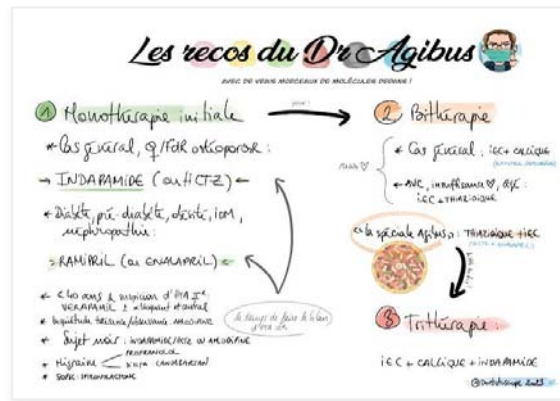 Les recos du Dr Agibus
AVEC DE VRAIS MORCEAUX DE MOLÉCULES DEDANS !
1 Monothérapie initiale
* Cas général, ♀/FdR ostéoporose :
→ INDAPAMIDE (ou HCTZ) ←
* Diabète, pré-diabète, obésité, IDM,
néphropathie :
> RAMIPRIL (ou ENALAPRIL) ←
* < 40 ans & suspicion d'HTA II
VERAPAMIL ± α bloquant et central
* Sujet noir : INDAPAMIDE/HCTZ OU AMLODIPINE
* Migraine
PROPRANOLOL
CANDESARTAN
* SOPK : SPIRONOLACTONE
le temps de faire le bilan
d'HTA
2 Bithérapie
* Cas général : IEC + CALCIQUE
* AVC, insuffisance ♡, âgé :
IEC + THIAZIDIQUE
"la spéciale Agibus" : THIAZIDIQUE + IEC
3 Trithérapie :
IEC + CALCIQUE + INDAPAMIDE